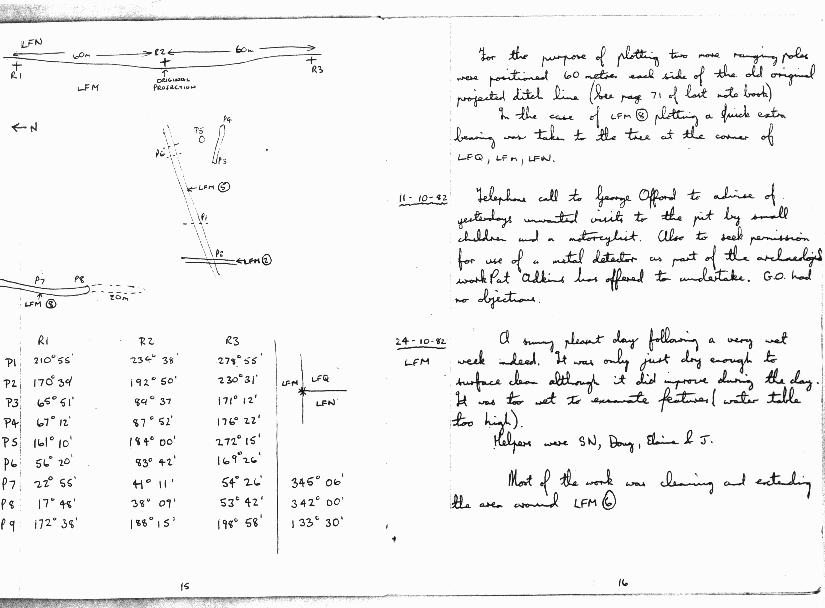 LFN
60m R2 60m
R1 R3
ORIGINAL
PROJECTION
LFM
← N
P4
P5
P6
P3
LFM ⑤
P1
P2
LFM ②
P7 P8
20m
LFM ⑧
R1 R2 R3
P1 210° 55' 234° 38' 278° 55'
P2 170° 34' 192° 50' 230° 31'
P3 65° 51' 84° 37 171° 12'
P4 67° 12' 87° 52' 176° 22'
P5 161° 10' 184° 00' 272° 15'
P6 56° 20' 83° 42' 169° 26'
P7 22° 55' 41° 11' 54° 26' 345° 06'
P8 17° 48' 38° 09' 53° 42' 342° 00'
P9 172° 38' 188° 15' 198° 58' 133° 30'
LFM LFQ
LFN
15
For the purpose of plotting two more ranging poles
were positioned 60 metres each side of the old original
projected ditch line (See page 71 of last note book)
In the case of LFM ⑧ plotting a quick extra
bearing was taken to the tree at the corner of
LFQ, LFM, LFN.
11-10-82 Telephone call to George Offord to advise of
yesterdays unwanted visits to the pit by small
children and a motorcyclist. Also to seek permission
for use of a metal detector as part of the archaeolog
work Pat Adkins has offered to undertake. G.O. had
no objections.
24-10-82 A sunny pleasant day following a very wet
LFM week indeed. It was only just dry enough to
surface clean although it did improve during the day.
It was too wet to excavate features (water table
too high).
Helpers were SN, Doug, Elaine & J.
Most of the work was cleaning and extending
the area around LFM ⑥
16